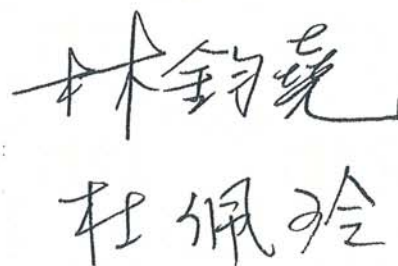 林鈞堯
杜佩玲